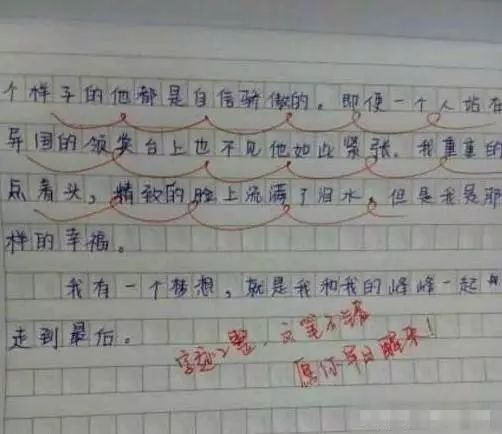 个样子的他都是自信骄傲的。即便一个人站在
异国的领奖台上也不见他如此紧张。我重重的
点着头，精致的脸上流满了泪水，但是我是那
样的幸福。
我有一个梦想，就是我和我的峰峰一起
走到最后。
字迹工整，文笔
愿你早日醒来！